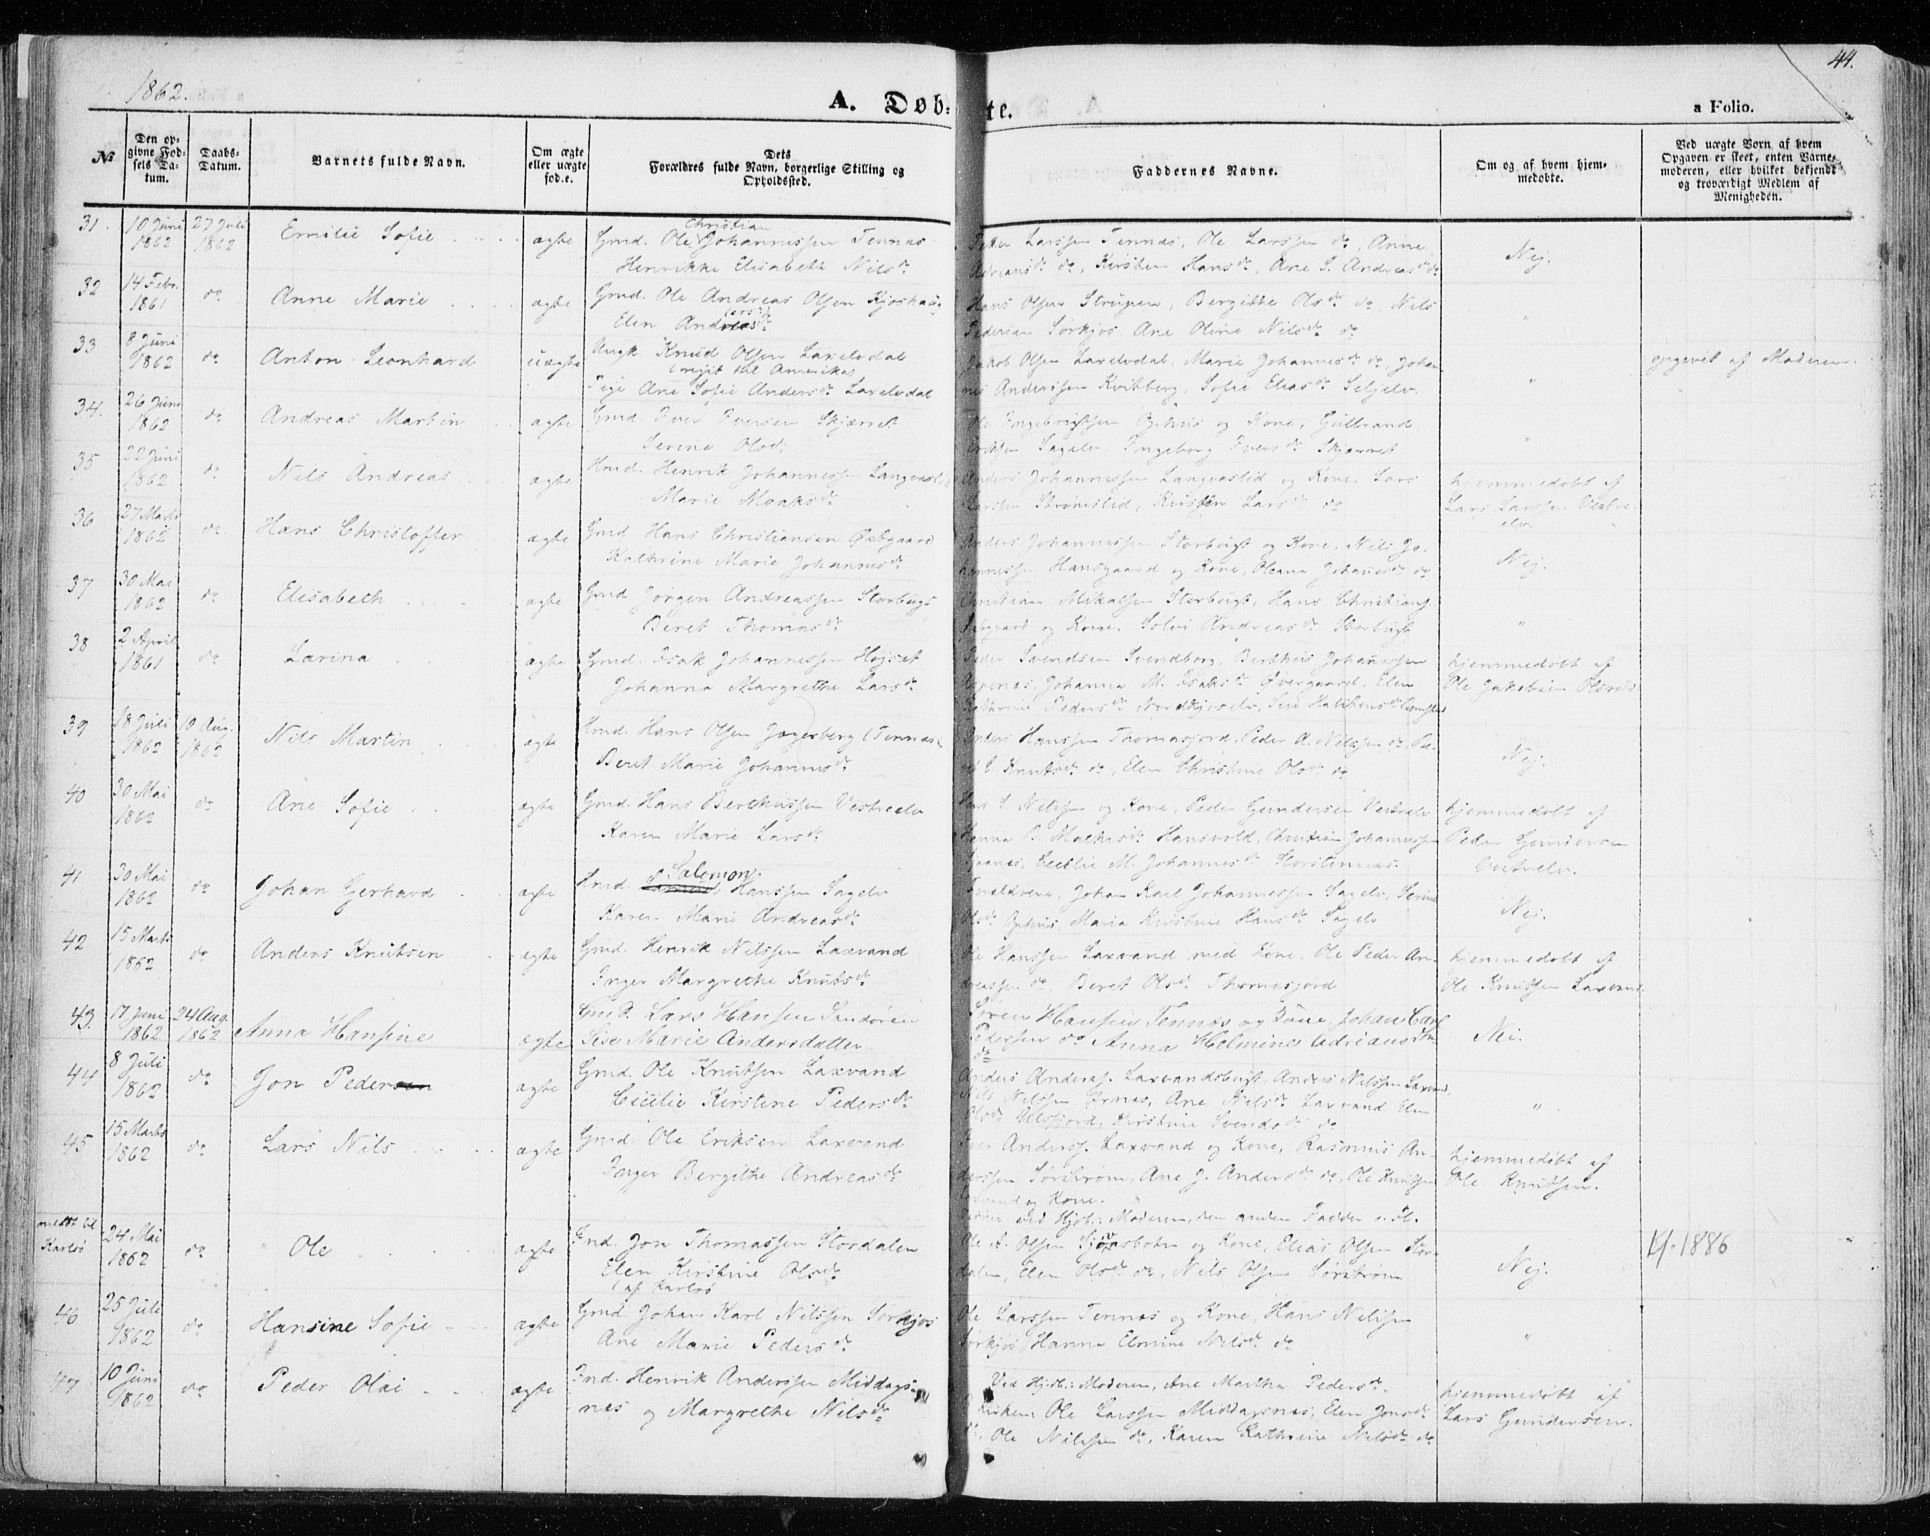 1862.
44.
A. Døb-te.
a Folio.
№
Den opgivne Fødsels Datum.
Daabs-Datum.
Barnets fulde Navn.
Om ægte eller uægte fød.e.
Dets Forældres fulde Navn, borgerlige Stilling og Opholdssted.
Faddernes Navne.
Om og af hvem hjemmedøbte.
Ved uægte Børn af hvem Opgaven er skeet, enten Barnemoderen, eller hvilket bekjendt og troværdigt Medlem af Menigheden.
31. 10 Juni 1862 27 Juli 1862 Emilie Sofie ægte Gmd. Ole Christian Johannessen Tennæs
Henrikke Elisabeth Nilsdr.
Peder Larssen Tennæs, Ole Larssen do, Anne
Adriansdr do, Kirsten Hansdr, Ane S. Andreasdr do
Nej.
32 14 Febr. 1861 do Anne Marie ægte Gmd. Ole Andreas Olsen Kjoshaug
Elen Andersdr
Hans Olsen Strupen, Bergitte Olsdr do, Nils
Pedersen Sørkjos, Ane Oline Nilsdr do
"
33 8 Juni 1862 do Anton Leonhard uægte Ungk. Knud Olsen Laxelvdal
(rejst til Amerika)
Pige Ane Sofie Andersdr Laxelvdal
Jakob Olsen Laxelvdal, Marie Johannesdr do, Johan-
nes Anderssen Kvitberg, Sofie Eliasdr Seljelv.
"
opgivet af Moderen.
34. 26 Juni 1862 do Andreas Martin ægte Gmd Iver Iversen Skjæret
Serine Olsdr.
Ole Ingebrigtsen Ophus og Kone, Gulbrand
Eriksen Sagelv, Ingeborg Iversdr Skjæret
"
35 22 Juni 1862 do Nils Andreas ægte Hmd. Henrik Johannessen Langenslid
Marie Moaksdr
Anders Johannessen Langenslid og Kone, Lars
Larssen Strømslid, Kirsten Larsdr do
hjemmedøbt af
Lars Larssen
36 27 Marts 1862 do Hans Christoffer ægte Gmd. Hans Christiansen Østgaard
Kathrine Marie Johannesdr
Anders Johannessen Storbugt og Kone, Nils Jo-
hannessen Hansgaard og Kone, Oleana Johannesdr do
Nej.
37 30 Mai 1862 do Elisabeth ægte Gmd Jørgen Andreassen Storbugt
Beret Thomasdr
Christian Mikalsen Storbugt, Hans Christians.
Østgaard og Kone, Sølvi Andreasdr Storbugt
"
38 2 April 1861 do Larina ægte Gmd. Isak Johannessen Højset
Johanna Margrethe Larsdr
Peder Svendsen Svendborg, Berthus Johannessen
Johanna M. Isaksdr Øvergaard, Elen
Kathrine Pedersdr Nordkjoselv,
hjemmedøbt af
Ole Jakobsen
39 18 Juli 1862 10 Aug. 1862 Nils Martin ægte Hmd. Hans Olsen Jægerberg (Tennæs
Beret Marie Johannesdr
Anders Hanssen Thomasjord, Peder A. Nilssen do,
Knutsdr do, Elen Christine Olsdr do
Nej.
40 30 Mai 1862 do Ane Sofie ægte Gmd. Hans Berthussen Vestreelv
Karen Marie Larsdr
Nilssen og Kone, Peder Gundersen Vestrelv
Hanna Hansvold, Christian Johannessen
Cecilie M. Johannesdr Storsteinnæs.
hjemmedøbt af
Peder Gundersen
Vestrelv.
41 30 Mai 1862 do Johan Gerhard ægte Hmd. Salemon Hanssen Sagelv
Karen Marie Andreasdr
Forældrene, Johan Karl Johannessen Sagelv, Serine
Olsdr Ophus, Maria Kirstine Hansdr Sagelv
Nej.
42 15 Marts 1862 do Anders Knutsen ægte Gmd. Henrik Nilssen Laxvand
Inger Margrethe Knutsdr
Ole Hanssen Laxvand med Kone, Ole Peder An-
dreassen do, Beret Olsdr Thomasjord
hjemmedøbt af
Ole Knutsen Laxvand
43. 17 Juni 1862 24 Aug. 1862 Anna Hansine ægte Gmd. Lars Hansen Sandøren
Sise Marie Andersdatter
Søren Hansen Tennæs og Kone, Johan Carl
Pedersen do Anna Helmine Adriansdtr
do
Nei.
44 8 Juli 1862 do Jon Peder ægte Gmd. Ole Knutsen Laxvand
Cicilie Kirstine Pedersdr
Anders Anders. Laxvandsbugt, Anders Nilssen Laxvand,
Nils Nilssen Ørnæs, Ane Nilsdr Laxvand Elen
Olsdr Ulsfjord, Kirstine Svendsdr do
"
45 15 Marts 1862 do Lars Nils ægte Gmd Ole Eriksen Laxvand
Inger Bergithe Andreasdr
Iver Anderss. Laxvand og Kone, Rasmus An-
derssen Sørstrøm, Ane J. Andersdr do, Ole Knutsen
Laxvand og Kone.
Fadder ved Hjdb.: Moderen, den anden Fadder
hjemmedøbt af
Ole Knutsen.
meldt til Karlsø 24 Mai 1862 do Ole ægte Gmd. Jon Thomassen Stordalen
Elen Kirstine Olsdr
(af Karlsø
Ole A. Olsen Sjøvasbotn og Kone, Elias Olsen Stor-
dalen, Elen Olsdr do, Nils Olsen Sørstrøm
Nej.
1886
46 25 Juli 1862 do Hansine Sofie ægte Gmd. Johan Karl Nilssen Sørkjos
Ane Marie Pedersdr
Ole Larssen Tennæs og Kone, Hans Nilssen
Sørkjos, Hanna Elmine Nilsdr do
"
47 10 Juni 1862 do Peder Olai ægte Gmd. Henrik Anderssen Middags-
næs og Margrethe Nilsdr
Ved Hjdb.: Moderen, Ane Martha Pedersdr.
I Kirken, Ole Larssen Middagsnæs, Elen Jonsdr
do, Ole Nilssen do, Karen Kathrine Nilsdr do
hjemmedøbt af
Lars Gundersen.